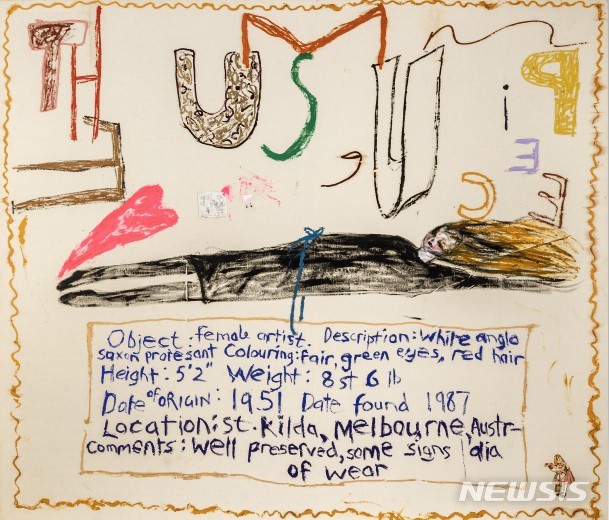 THE MUSeUM PiECE
Object: female artist. Description: White anglo
saxon protesant Colouring: fair, green eyes, red hair
Height: 5'2" Weight: 8 st 6 lb
Date of ORIGIN: 1951 Date found 1987
Location: st. Kilda, Melbourne, Austr-
alia
Comments: Well preserved, some signs
of wear
NEWSIS